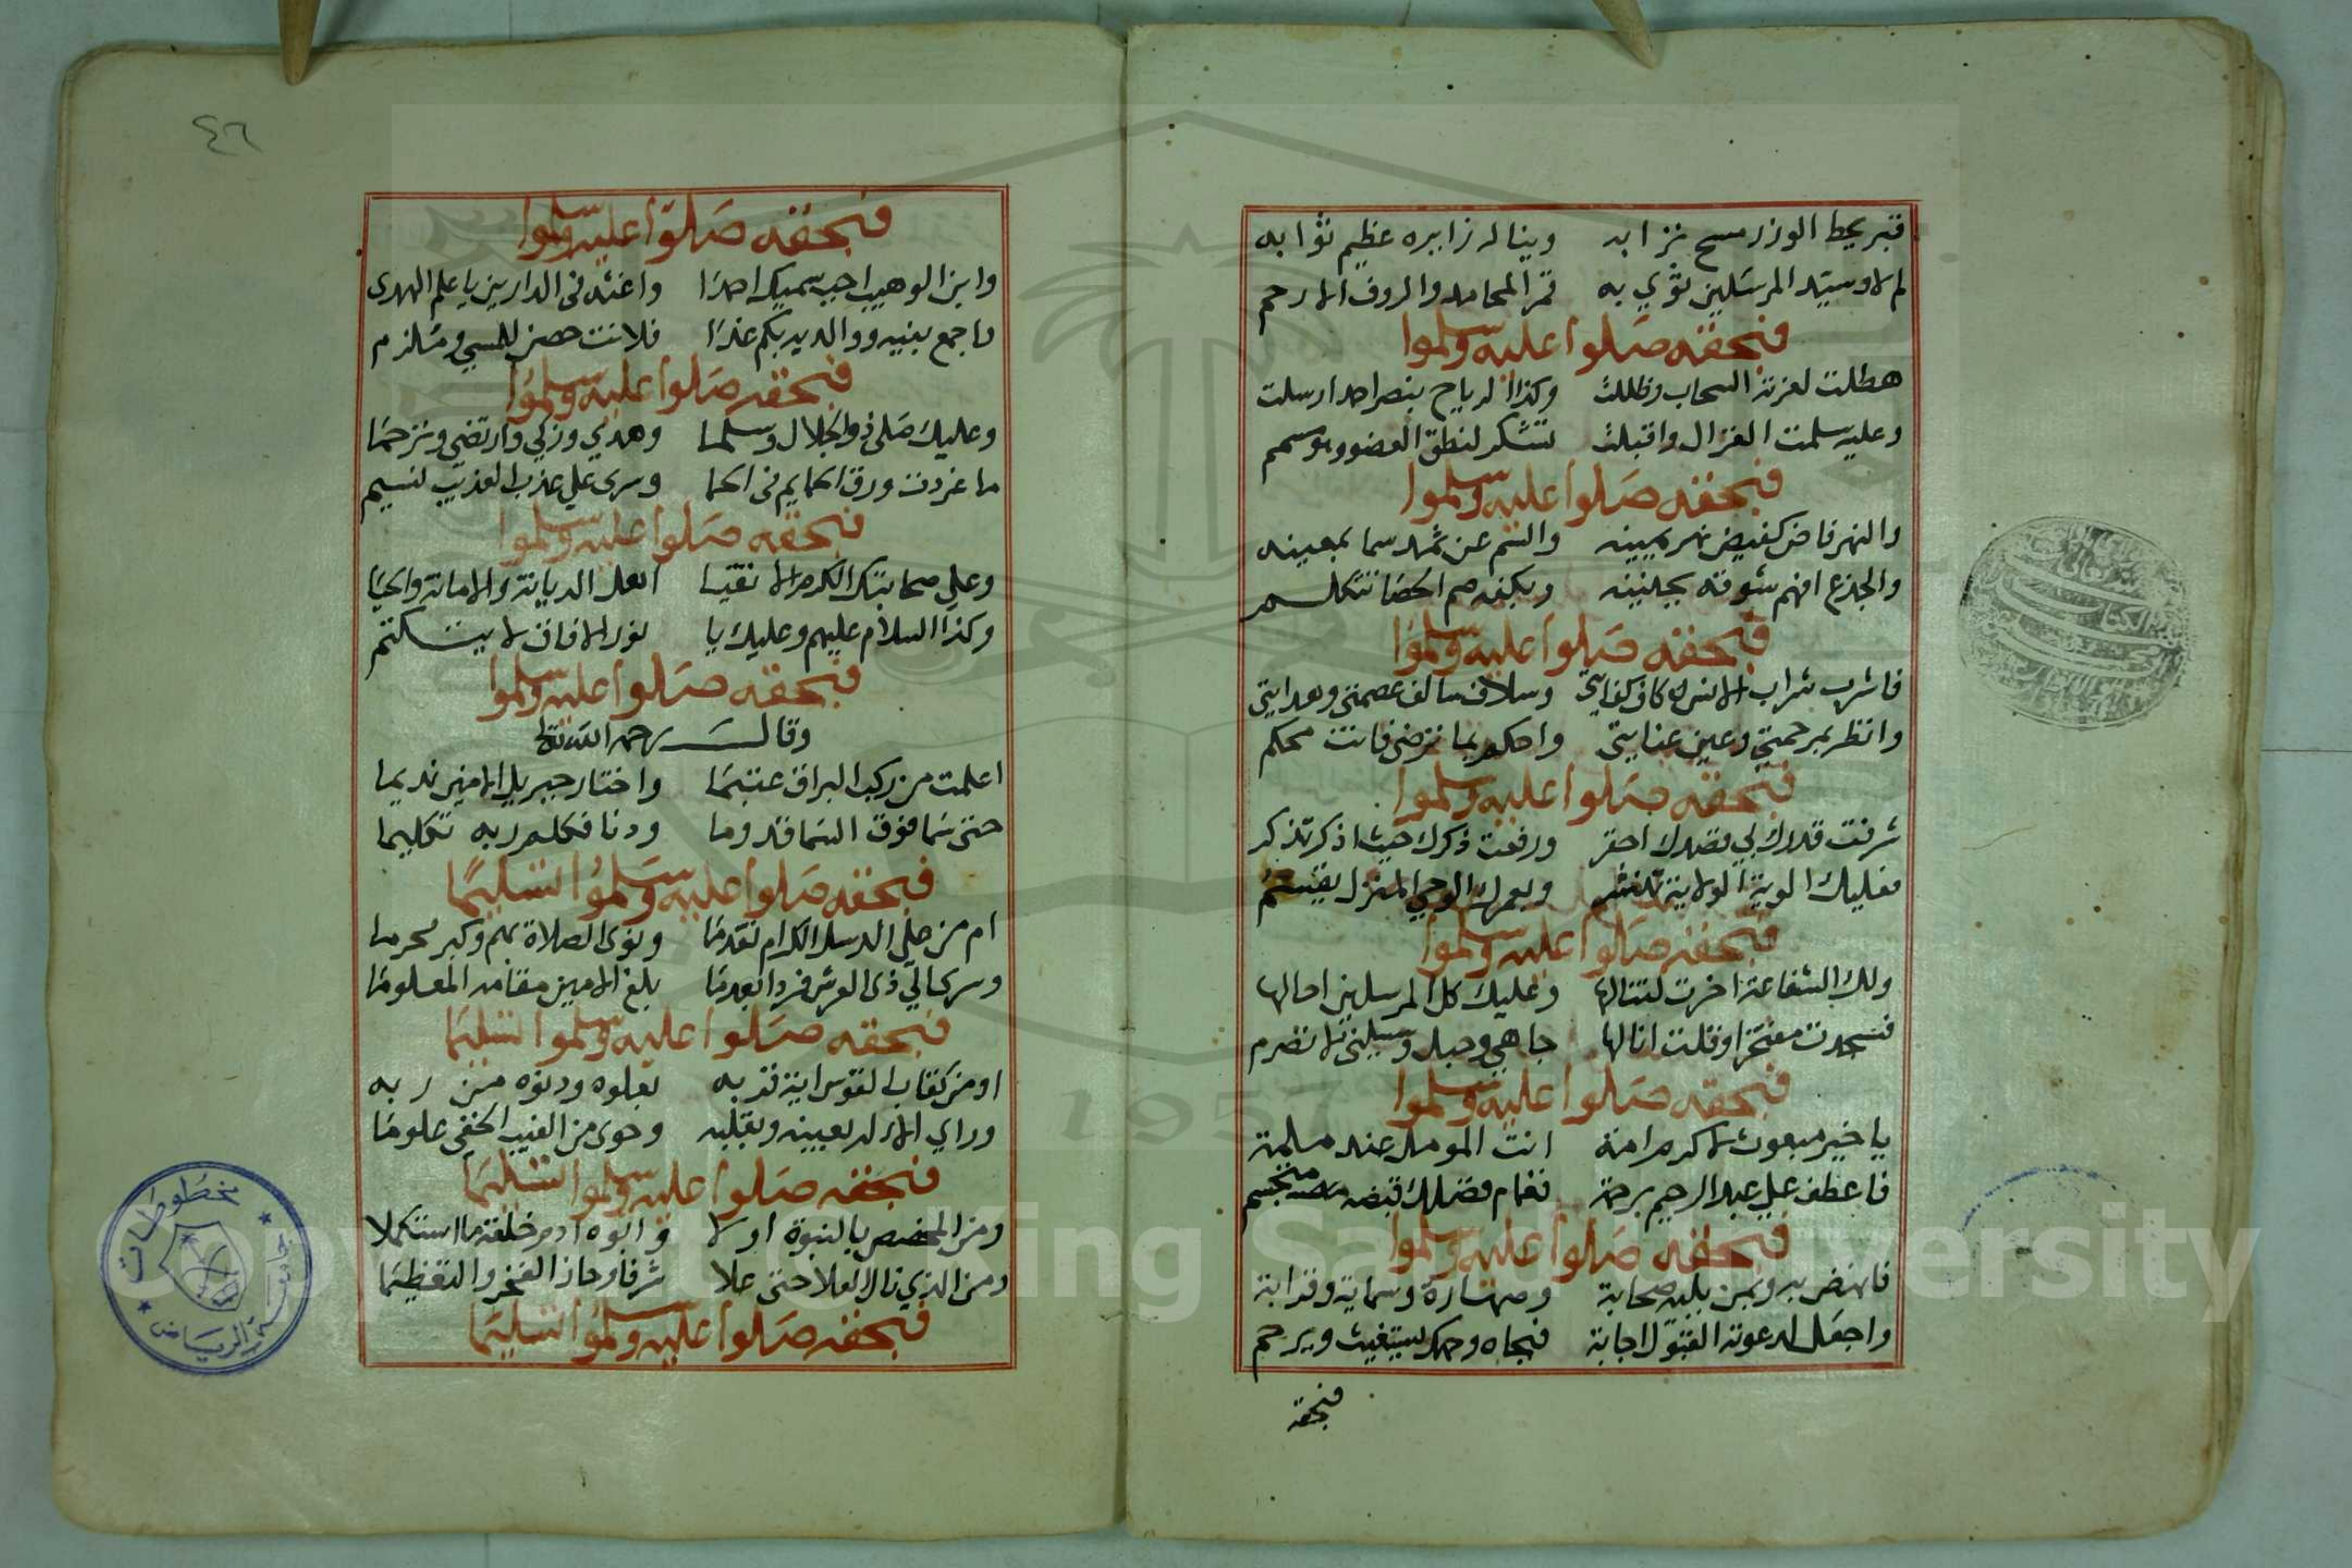 قبر يحط الوزر مسح ترابه وينال زايره عظيم ثوابه
لم لا وسيد المرسلين ثوي به قمر المحامد والروف الارحم
فبحقه صلوا عليه وسلموا
هطلت لعزته السحاب وظللت وكذا الرياح بنصر احمد ارسلت
وعليه سلمت الغزال واقبلت تشكر لنطق العضو وهو مسمم
فبحقه صلوا عليه وسلموا
والنهر فاض كفيض نهر يمينه والنتم عن ثمد سما بمعينه
والجذع افهم شوقه بحنينه وبكفه صم الحصا تتكلم
فبحقه صلوا عليه وسلموا
فاشرب شراب الانس كاف كفايتي وسلاف سالف عصمتي وهدايتي
وانظر بمرحمتي وعين عنايتي واحكم بما ترضي فانت محكم
فبحقه صلوا عليه وسلموا
شرفت قدرك بي فصدك احقر ورفعت ذكرك حيث اذكر تذكر
فعليك الوية الولاية تنشر وبعمرك الوحي المنزل يقسم
فبحقه صلوا عليه وسلموا
ولك الشفاعة اخرت لتنالها وعليك كل المرسلين احالها
فسجدت مفتخرا وقلت انا لها جاهي وحبل وسيلتي لا تصرم
فبحقه صلوا عليه وسلموا
يا خير مبعوث لاكرم امة انت المومل عند ملمة
فاعطف علي عبد الرحيم برحمة فغمام فضلك فيضه متبجسم
فبحقه صلوا عليه وسلموا
فانهض به وبمن يليه صحابة وصهارة وسماية وقرابة
واجعل لدعوته القبول اجابة فبجاه وجهك يستغيث ويرحم
فبحقه
٤٦
فبحقه صلوا عليه وسلموا
وابن الوهيب احب سميك احمدا واغثه في الدارين يا علم الهدى
واجمع بنيه ووالديه بكم غدا فلانت حصن للمسي وملزم
فبحقه صلوا عليه وسلموا
وعليك صلى ذو الجلال وسلما وهدي وزكي وارتضي وترحما
ما غردت ورق الحمايم في الحما وسرى علي عذب العذيب نسيم
فبحقه صلوا عليه وسلموا
وعلي صحابتك الكرام الاتقيا اهل الديانة والامانة والحيا
وكذا السلام عليهم وعليك يا نور الافاق لا يتكتم
فبحقه صلوا عليه وسلموا
وقال رحمه الله تعالى
اعلمت من ركب البراق عتيما واختار جبريل الامين نديما
حتى سما فوق السما قدوما ودنا فكلم ربه تكليما
فبحقه صلوا عليه وسلموا تسليما
ام من علي الرسل الكرام تقدما ونوى الصلاة بهم وكبر محرما
وسرى الي ذي العرش فردا بعدما بلغ الامين مقامه المعلوما
فبحقه صلوا عليه وسلموا تسليما
او من كقاب القوس اية قربه بعلوه ودنوه من ربه
وراي الاله بعينه وبقلبه وحوى من الغيب الخفي علوما
فبحقه صلوا عليه وسلموا تسليما
ومن المخصص بالنبوة اولا وابوه ادم خلقه ما استكملا
ومن الذي نال العلا حتى علا شرفا وحاز الفخر والتعظيما
فبحقه صلوا عليه وسلموا تسليما
مخطوطات
جامعة الرياض
1957
Copyright © King Saud University